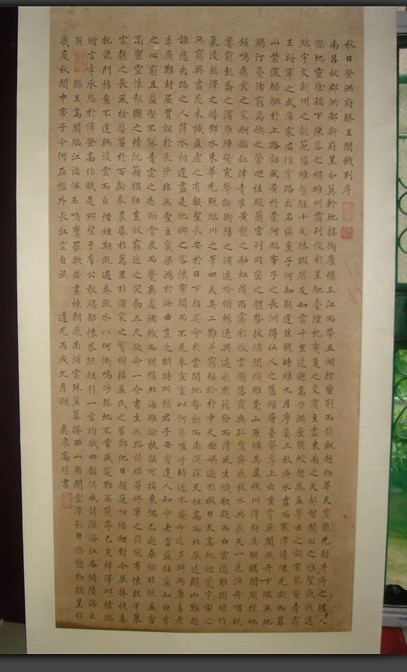 秋日登洪府滕王閣餞別序
南昌故郡洪都新府星分翼軫地接衡廬襟三江而帶五湖控蠻荊而引甌越物華天寶龍光射牛斗之墟人
傑地靈徐孺下陳蕃之榻雄州霧列俊彩星馳臺隍枕夷夏之交賓主盡東南之美都督閻公之雅望棨戟遙
臨宇文新州之懿範襜帷暫駐十旬休暇勝友如雲千里逢迎高朋滿座騰蛟起鳳孟學士之詞宗紫電青霜
王將軍之武庫家君作宰路出名區童子何知躬逢勝餞時維九月序屬三秋潦水盡而寒潭清煙光凝而暮
山紫儼驂騑於上路訪風景於崇阿臨帝子之長洲得仙人之舊館層巒聳翠上出重霄飛閣流丹下臨無地
鶴汀鳧渚窮島嶼之縈迴桂殿蘭宮列岡巒之體勢披繡闥俯雕甍山原曠其盈視川澤紆其駭矚閭閻撲地
鐘鳴鼎食之家舸艦迷津青雀黃龍之舳虹銷雨霽彩徹雲衢落霞與孤鶩齊飛秋水共長天一色漁舟唱晚
響窮彭蠡之濱雁陣驚寒聲斷衡陽之浦遙吟俯暢逸興遄飛爽籟發而清風生纖歌凝而白雲遏睢園綠竹
氣凌彭澤之樽鄴水朱華光照臨川之筆四美具二難并窮睇眄於中天極娛遊於暇日天高地迥覺宇宙之
無窮興盡悲來識盈虛之有數望長安於日下指吳會於雲間地勢極而南溟深天柱高而北辰遠關山難越
誰悲失路之人萍水相逢盡是他鄉之客懷帝閽而不見奉宣室以何年嗟乎時運不齊命途多舛馮唐易老
李廣難封屈賈誼於長沙非無聖主竄梁鴻於海曲豈乏明時所賴君子安貧達人知命老當益壯寧知白首
之心窮且益堅不墜青雲之志酌貪泉而覺爽處涸轍而猶懽北海雖賒扶搖可接東隅已逝桑榆非晚孟嘗
高潔空懷報國之情阮籍猖狂豈效窮途之哭勃三尺微命一介書生無路請纓等終軍之弱冠有懷投筆慕
宗愨之長風捨簪笏於百齡奉晨昏於萬里非謝家之寶樹接孟氏之芳鄰他日趨庭叨陪鯉對今晨捧袂喜
托龍門楊意不逢撫凌雲而自惜鍾期既遇奏流水以何慚嗚呼勝地不常盛筵難再蘭亭已矣梓澤邱墟臨
贈言幸承恩於偉餞登高作賦是所望於群公敢竭鄙懷恭疏短引一言均賦四韻俱成請灑潘江各傾陸海云
爾 滕王高閣臨江渚佩玉鳴鸞罷歌舞畫棟朝飛南浦雲珠簾暮捲西山雨閒雲潭影日悠悠物換星移
幾度秋閣中帝子今何在檻外長江空自流 道光丙戌九月朔 泉高書